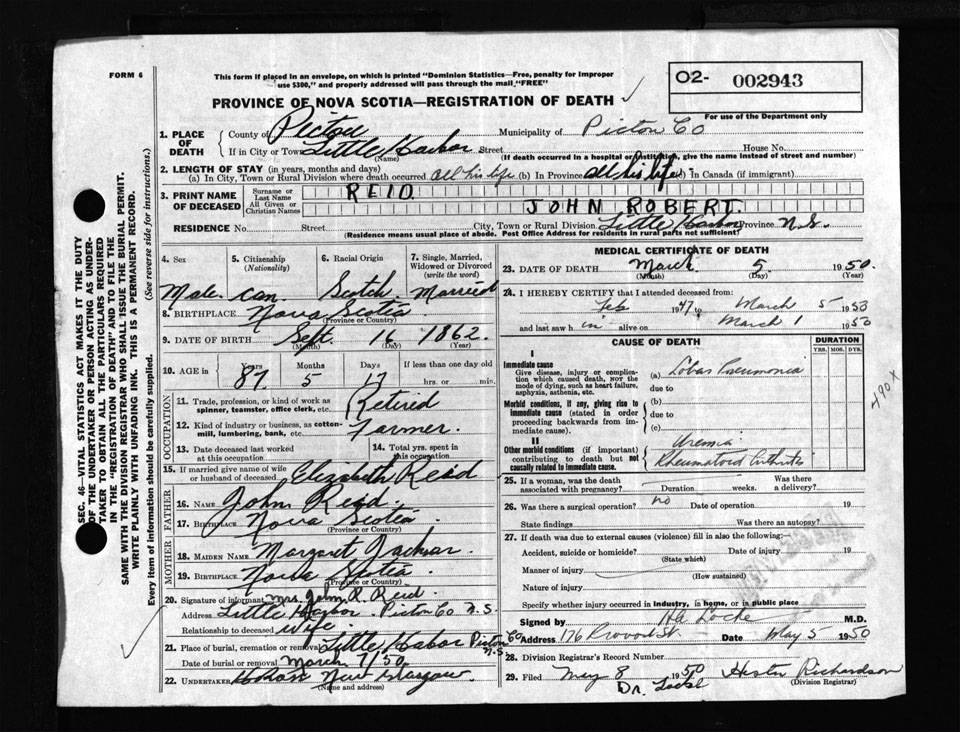 FORM 6
This form if placed in an envelope, on which is printed "Dominion Statistics—Free, penalty for improper
use $300," and properly addressed will pass through the mail "FREE"
O2- 002943
For use of the Department only
PROVINCE OF NOVA SCOTIA—REGISTRATION OF DEATH
SEC. 46—VITAL STATISTICS ACT MAKES IT THE DUTY
OF THE UNDERTAKER OR PERSON ACTING AS UNDER-
TAKER TO OBTAIN ALL THE PARTICULARS REQUIRED
IN THE "REGISTRATION OF DEATH" AND TO FILE THE
SAME WITH THE DIVISION REGISTRAR WHO SHALL ISSUE THE BURIAL PERMIT.
WRITE PLAINLY WITH UNFADING INK. THIS IS A PERMANENT RECORD.
Every item of information should be carefully supplied. (See reverse side for instructions.)
1. PLACE OF DEATH
County of Pictou Municipality of Pictou Co
If in City or Town Little Harbor Street House No.
(Name) (If death occurred in a hospital or institution, give the name instead of street and number)
2. LENGTH OF STAY (in years, months and days)
(a) In City, Town or Rural Division where death occurred all his life (b) In Province all his life (c) In Canada (if immigrant)
3. PRINT NAME OF DECEASED
Surname or Last Name REID
All Given or Christian Names JOHN ROBERT.
RESIDENCE No. Street City, Town or Rural Division Little Harbor Province N.S.
(Residence means usual place of abode. Post Office Address for residents in rural parts not sufficient)
4. Sex 5. Citizenship (Nationality) 6. Racial Origin 7. Single, Married, Widowed or Divorced (write the word)
Male. Can. Scotch Married
8. BIRTHPLACE Nova Scotia
(Province or Country)
9. DATE OF BIRTH Sept. 16 1862.
(Month) (Day) (Year)
10. AGE in Years Months Days If less than one day old
87 5 17 hrs. or min.
OCCUPATION
11. Trade, profession, or kind of work as
spinner, teamster, office clerk, etc. Retired
12. Kind of industry or business, as cotton-
mill, lumbering, bank, etc. Farmer.
13. Date deceased last worked at this occupation
14. Total yrs. spent in this occupation
15. If married give name of wife
or husband of deceased Elizabeth Reid
FATHER
16. NAME John Reid.
17. BIRTHPLACE Nova Scotia
(Province or Country)
MOTHER
18. MAIDEN NAME Margaret
19. BIRTHPLACE Nova Scotia
(Province or Country)
20. Signature of informant Mrs. John R. Reid
Address Little Harbor. Pictou Co N.S.
Relationship to deceased wife.
21. Place of burial, cremation or removal Little Harbor Pictou Co N.S
Date of burial or removal March 7/50
22. UNDERTAKER New Glasgow
(Name and address)
MEDICAL CERTIFICATE OF DEATH
23. DATE OF DEATH March 5 1950.
(Month) (Day)
24. I HEREBY CERTIFY that I attended deceased from:
Feb 1947 to March 5 1950
and last saw him alive on March 1 1950
CAUSE OF DEATH
DURATION
YRS. MOS. DYS.
I
Immediate cause
Give disease, injury or complica-
tion which caused death, NOT the
mode of dying, such as heart failure,
asphyxia, asthenia, etc.
(a) Lobar Pneumonia
due to
Morbid conditions, if any, giving rise to
immediate cause (stated in order
proceeding backwards from im-
mediate cause).
(b)
due to
(c)
II
Other morbid conditions (if important)
contributing to death but not
causally related to immediate cause.
Uremia
Rheumatoid Arthritis
490 X
25. If a woman, was the death associated with pregnancy? Duration weeks. Was there a delivery?
26. Was there a surgical operation? no Date of operation 19
State findings Was there an autopsy?
27. If death was due to external causes (violence) fill in also the following:
Accident, suicide or homicide? Date of injury 19
(State which)
Manner of injury
(How sustained)
Nature of injury
Specify whether injury occurred in industry, in home, or in public place
Signed by Locke M.D.
Address 176 Provost St. Date May 5 1950
28. Division Registrar's Record Number
29. Filed May 8 1950 Hester Richardson
Dr. Locke (Division Registrar)